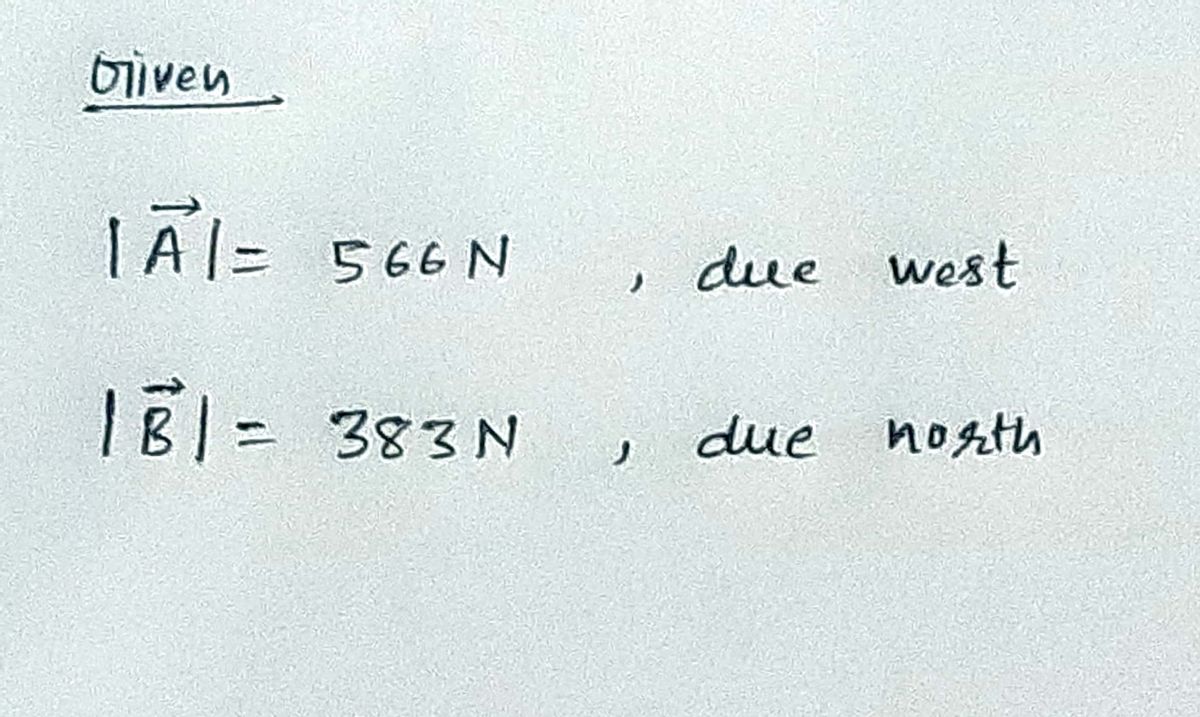 Given
|A⃗| = 566 N , due west
|B⃗| = 383 N , due north